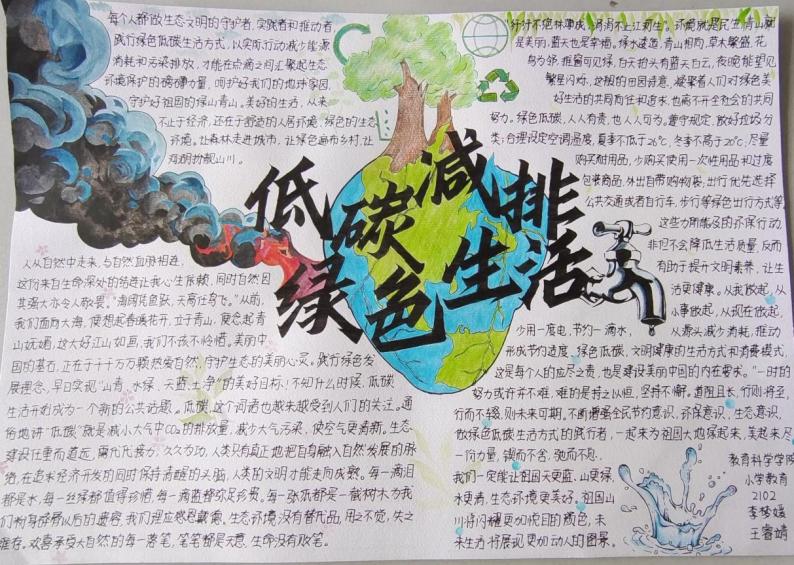 每个人都做生态文明的守护者，实践者和推动者，
践行绿色低碳生活方式，以实际行动减少能源
消耗和污染排放，才能在点滴之间汇聚起生态
环境保护的磅礴力量，呵护好我们的地球家园，
守护好祖国的绿山青山。美好的生活，从来
不止于经济，还在于舒适的人居环境，绿色的生态
环境。让森林走进城市，让绿色遍布乡村，让
是美丽，蓝天也是幸福。绿水逶迤，青山相向，草木繁盛，花
鸟为邻，推窗可见绿，白天抬头有蓝天白云，夜晚能望见
繁星闪烁，这般的田园诗意，凝聚着人们对绿色美
好生活的共同向往和追求，也离不开全社会的共同
努力。绿色低碳，人人有责，也人人可为。遵守规定，做好垃圾分
类；合理设定空调温度，夏季不低于26℃，冬季不高于20℃；尽量
购买耐用品，少购买使用一次性用品和过度
包装商品，外出自带购物袋，出行优先选择
公共交通或者自行车，步行等绿色出行方式等，
这些力所能及的环保行动，
非但不会降低生活质量，反而
有助于提升文明素养，让生
活更健康。从我做起，从
小事做起，从现在做起，
低碳减排
绿色生活
人从自然中走来，与自然血脉相连，
这份来自生命深处的
其强大亦令人敬畏。
我们面向大海，便想起春暖花开，立于青山，便念起青
山妩媚，这大好江山如画，我们不该不怜惜。美丽中
国的基石，正在于千千万万颗热爱自然，守护生态的美丽心灵。践行绿色发
展理念，早日实现“山青，水绿，天蓝，土净”的美好目标！不知什么时候，低碳
生活开始成为一个新的公共话题。低碳，这个词语也越来越受到人们的关注。通
俗地讲“低碳”就是减小大气中CO₂的排放量，减少大气污染，使空气更清新。生态
建设任重而道远，需
人类只有真正地把自身融入自然发展的脉
络，在追求经济开发的同时保持清醒的头脑，人类的文明才能走向成熟。每一滴泪
都是水，每一丝绿都值得珍惜，每一滴蓝都弥足珍贵。每一张纸都是一截树木为我
们
我们理应感恩戴德，生态环境没有替代品，用之不觉，失之
难存。欢喜承受大自然的每一落笔，笔笔都是天意，生命没有败笔。
少用一度电，节约一滴水，
从源头减少消耗，推动
形成节约适度，绿色低碳，文明健康的生活方式和消费模式，
这是每个人的应尽之责，也是建设美丽中国的内在要求。“一时的
努力或许并不难，难的是持之以恒，坚持不懈。道阻且长，行则将至，
行而不辍，则未来可期。不断增强全民节约意识，环保意识，生态意识，
做绿色低碳生活方式的践行者，一起来为祖国大地绿起来，美起来尽
一份力量，锲而不舍，驰而不息，
我们一定能让祖国天更蓝，山更绿，
水更清，生态环境更美好。祖国山
川将闪耀更加悦目的颜色，未
来生活将展现更加动人的图景。
教育科学学院
小学教育
2102
李梦媛
王睿婧